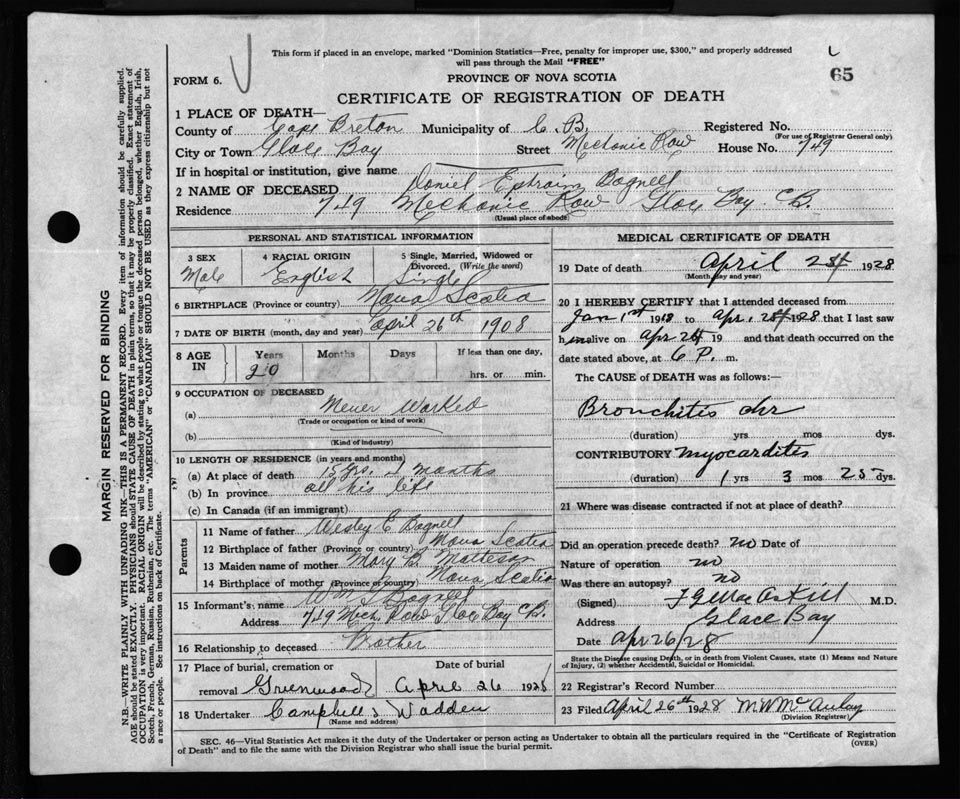 This form if placed in an envelope, marked "Dominion Statistics—Free, penalty for improper use, $300," and properly addressed
will pass through the Mail "FREE"
65
FORM 6.
PROVINCE OF NOVA SCOTIA
CERTIFICATE OF REGISTRATION OF DEATH
1 PLACE OF DEATH—
County of Cape Breton Municipality of C. B. Registered No.
(For use of Registrar General only)
City or Town Glace Bay Street Mechanic Row House No. 749
If in hospital or institution, give name
2 NAME OF DECEASED Daniel Ephraim Bagnell
Residence 749 Mechanic Row Glace Bay C.B.
(Usual place of abode)
PERSONAL AND STATISTICAL INFORMATION
3 SEX 4 RACIAL ORIGIN 5 Single, Married, Widowed or Divorced. (Write the word)
Male English Single
6 BIRTHPLACE (Province or country) Nova Scotia
7 DATE OF BIRTH (month, day and year) April 26th 1908
8 AGE IN Years Months Days If less than one day,
20 hrs. or min.
9 OCCUPATION OF DECEASED
(a) Never Worked
(Trade or occupation or kind of work)
(b)
(Kind of industry)
10 LENGTH OF RESIDENCE (in years and months)
(a) At place of death 15 yrs. months
(b) In province all his life
(c) In Canada (if an immigrant)
Parents
11 Name of father Wesley E Bagnell
12 Birthplace of father (Province or country) Nova Scotia
13 Maiden name of mother Mary B. Matteson
14 Birthplace of mother (Province or country) Nova Scotia
15 Informant's name Wm Bagnell
Address 749 Mech. Row Glace Bay C.B.
16 Relationship to deceased Brother
17 Place of burial, cremation or Date of burial
removal Greenwood April 26 1928
18 Undertaker Campbell & Wadden
(Name and address)
MEDICAL CERTIFICATE OF DEATH
19 Date of death April 1928
(Month, day and year)
20 I HEREBY CERTIFY that I attended deceased from
Jan 1st 19 to Apr. 1928 that I last saw
him alive on Apr 19 and that death occurred on the
date stated above, at 6 P. m.
The CAUSE of DEATH was as follows:—
Bronchitis chr
(duration) yrs mos dys.
CONTRIBUTORY Myocarditis
(duration) 1 yrs 3 mos 25 dys.
21 Where was disease contracted if not at place of death?
Did an operation precede death? no Date of
Nature of operation no
Was there an autopsy? no
(Signed) M.D.
Address Glace Bay
Date Apr 26/28
State the Disease causing Death, or in death from Violent Causes, state (1) Means and Nature
of Injury, (2) whether Accidental, Suicidal or Homicidal.
22 Registrar's Record Number
23 Filed April 26th 1928 M W McAulay
(Division Registrar)
SEC. 46—Vital Statistics Act makes it the duty of the Undertaker or person acting as Undertaker to obtain all the particulars required in the "Certificate of Registration
of Death" and to file the same with the Division Registrar who shall issue the burial permit.
(OVER)
MARGIN RESERVED FOR BINDING
N.B.—WRITE PLAINLY WITH UNFADING INK—THIS IS A PERMANENT RECORD. Every item of information should be carefully supplied.
AGE should be stated EXACTLY. PHYSICIANS should STATE CAUSE OF DEATH in plain terms, so that it may be properly classified. Exact statement of
OCCUPATION is very important. RACIAL ORIGIN will be described by stating to what people or tongue the deceased person belonged, whether English, Irish,
Scotch, French, German, Russian, Ruthenian, etc. The terms "AMERICAN" or "CANADIAN" SHOULD NOT BE USED as they express citizenship but not
a race or people. See instructions on back of Certificate.